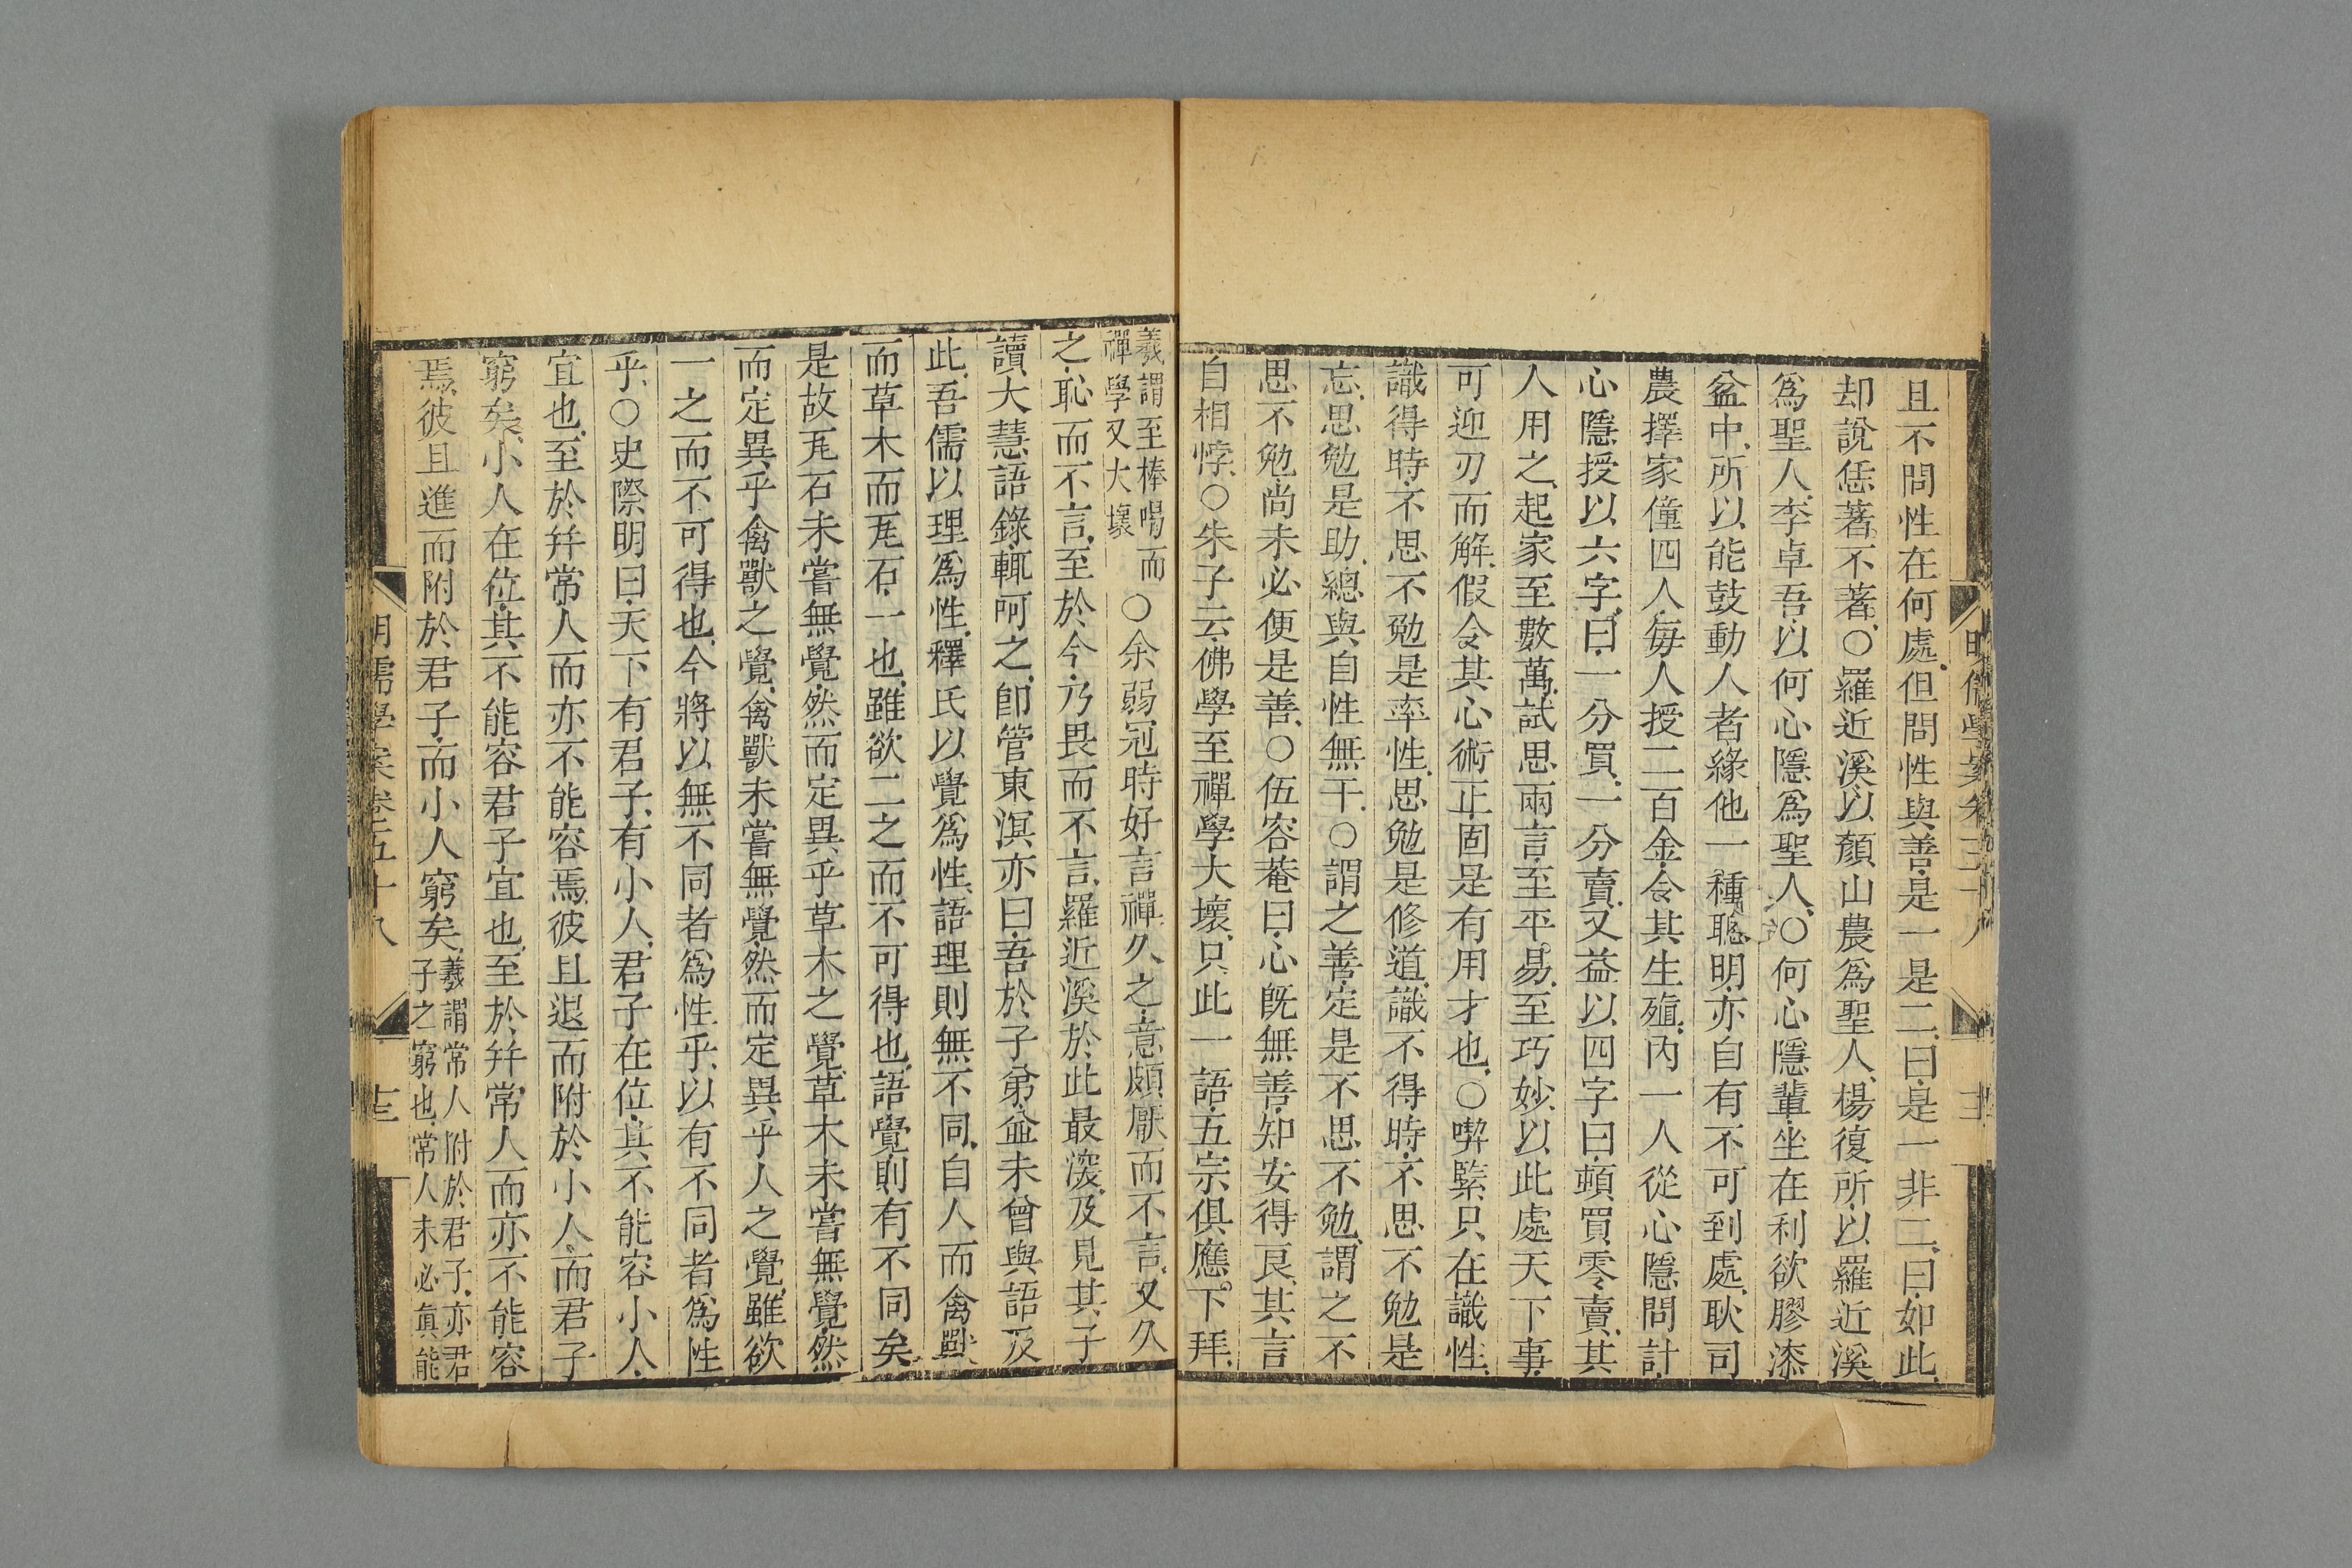 且不問性在何處但問性與善是一是二曰是一非二曰如此
却說恁著不著○羅近溪以顏山農爲聖人楊復所以羅近溪
爲聖人李卓吾以何心隱爲聖人○何心隱輩坐在利欲膠漆
盆中所以能鼓動人者緣他一種聰明亦自有不可到處耿司
農擇家僮四人每人授二百金令其生殖內一人從心隱問計
心隱授以六字曰一分買一分賣又益以四字曰頓買零賣其
人用之起家至數萬試思兩言至平易至巧妙以此處天下事
可迎刃而解假令其心術正固是有用才也○喫緊只在識性
識得時不思不勉是率性思勉是修道識不得時不思不勉是
忘思勉是助總與自性無干○謂之善定是不思不勉謂之不
思不勉尚未必便是善○伍容菴曰心旣無善知安得良其言
自相悖○朱子云佛學至禪學大壞只此一語五宗俱應下拜
羲謂至棒喝而
禪學又大壞
○余弱冠時好言禪久之意頗厭而不言又久
之恥而不言至於今乃畏而不言羅近溪於此最深及見其子
讀大慧語錄輒呵之卽管東溟亦曰吾於子弟並未曾與語及
此吾儒以理爲性釋氏以覺爲性語理則無不同自人而禽獸
而草木而瓦石一也雖欲二之而不可得也語覺則有不同矣
是故瓦石未嘗無覺然而定異乎草木之覺草木未嘗無覺然
而定異乎禽獸之覺禽獸未嘗無覺然而定異乎人之覺雖欲
一之而不可得也今將以無不同者爲性乎以有不同者爲性
乎○史際明曰天下有君子有小人君子在位其不能容小人
宜也至於幷常人而亦不能容焉彼且退而附於小人而君子
窮矣小人在位其不能容君子宜也至於幷常人而亦不能容
焉彼且進而附於君子而小人窮矣
羲謂常人附於君子亦君
子之窮也常人未必眞能
明儒學案卷五十八
十三